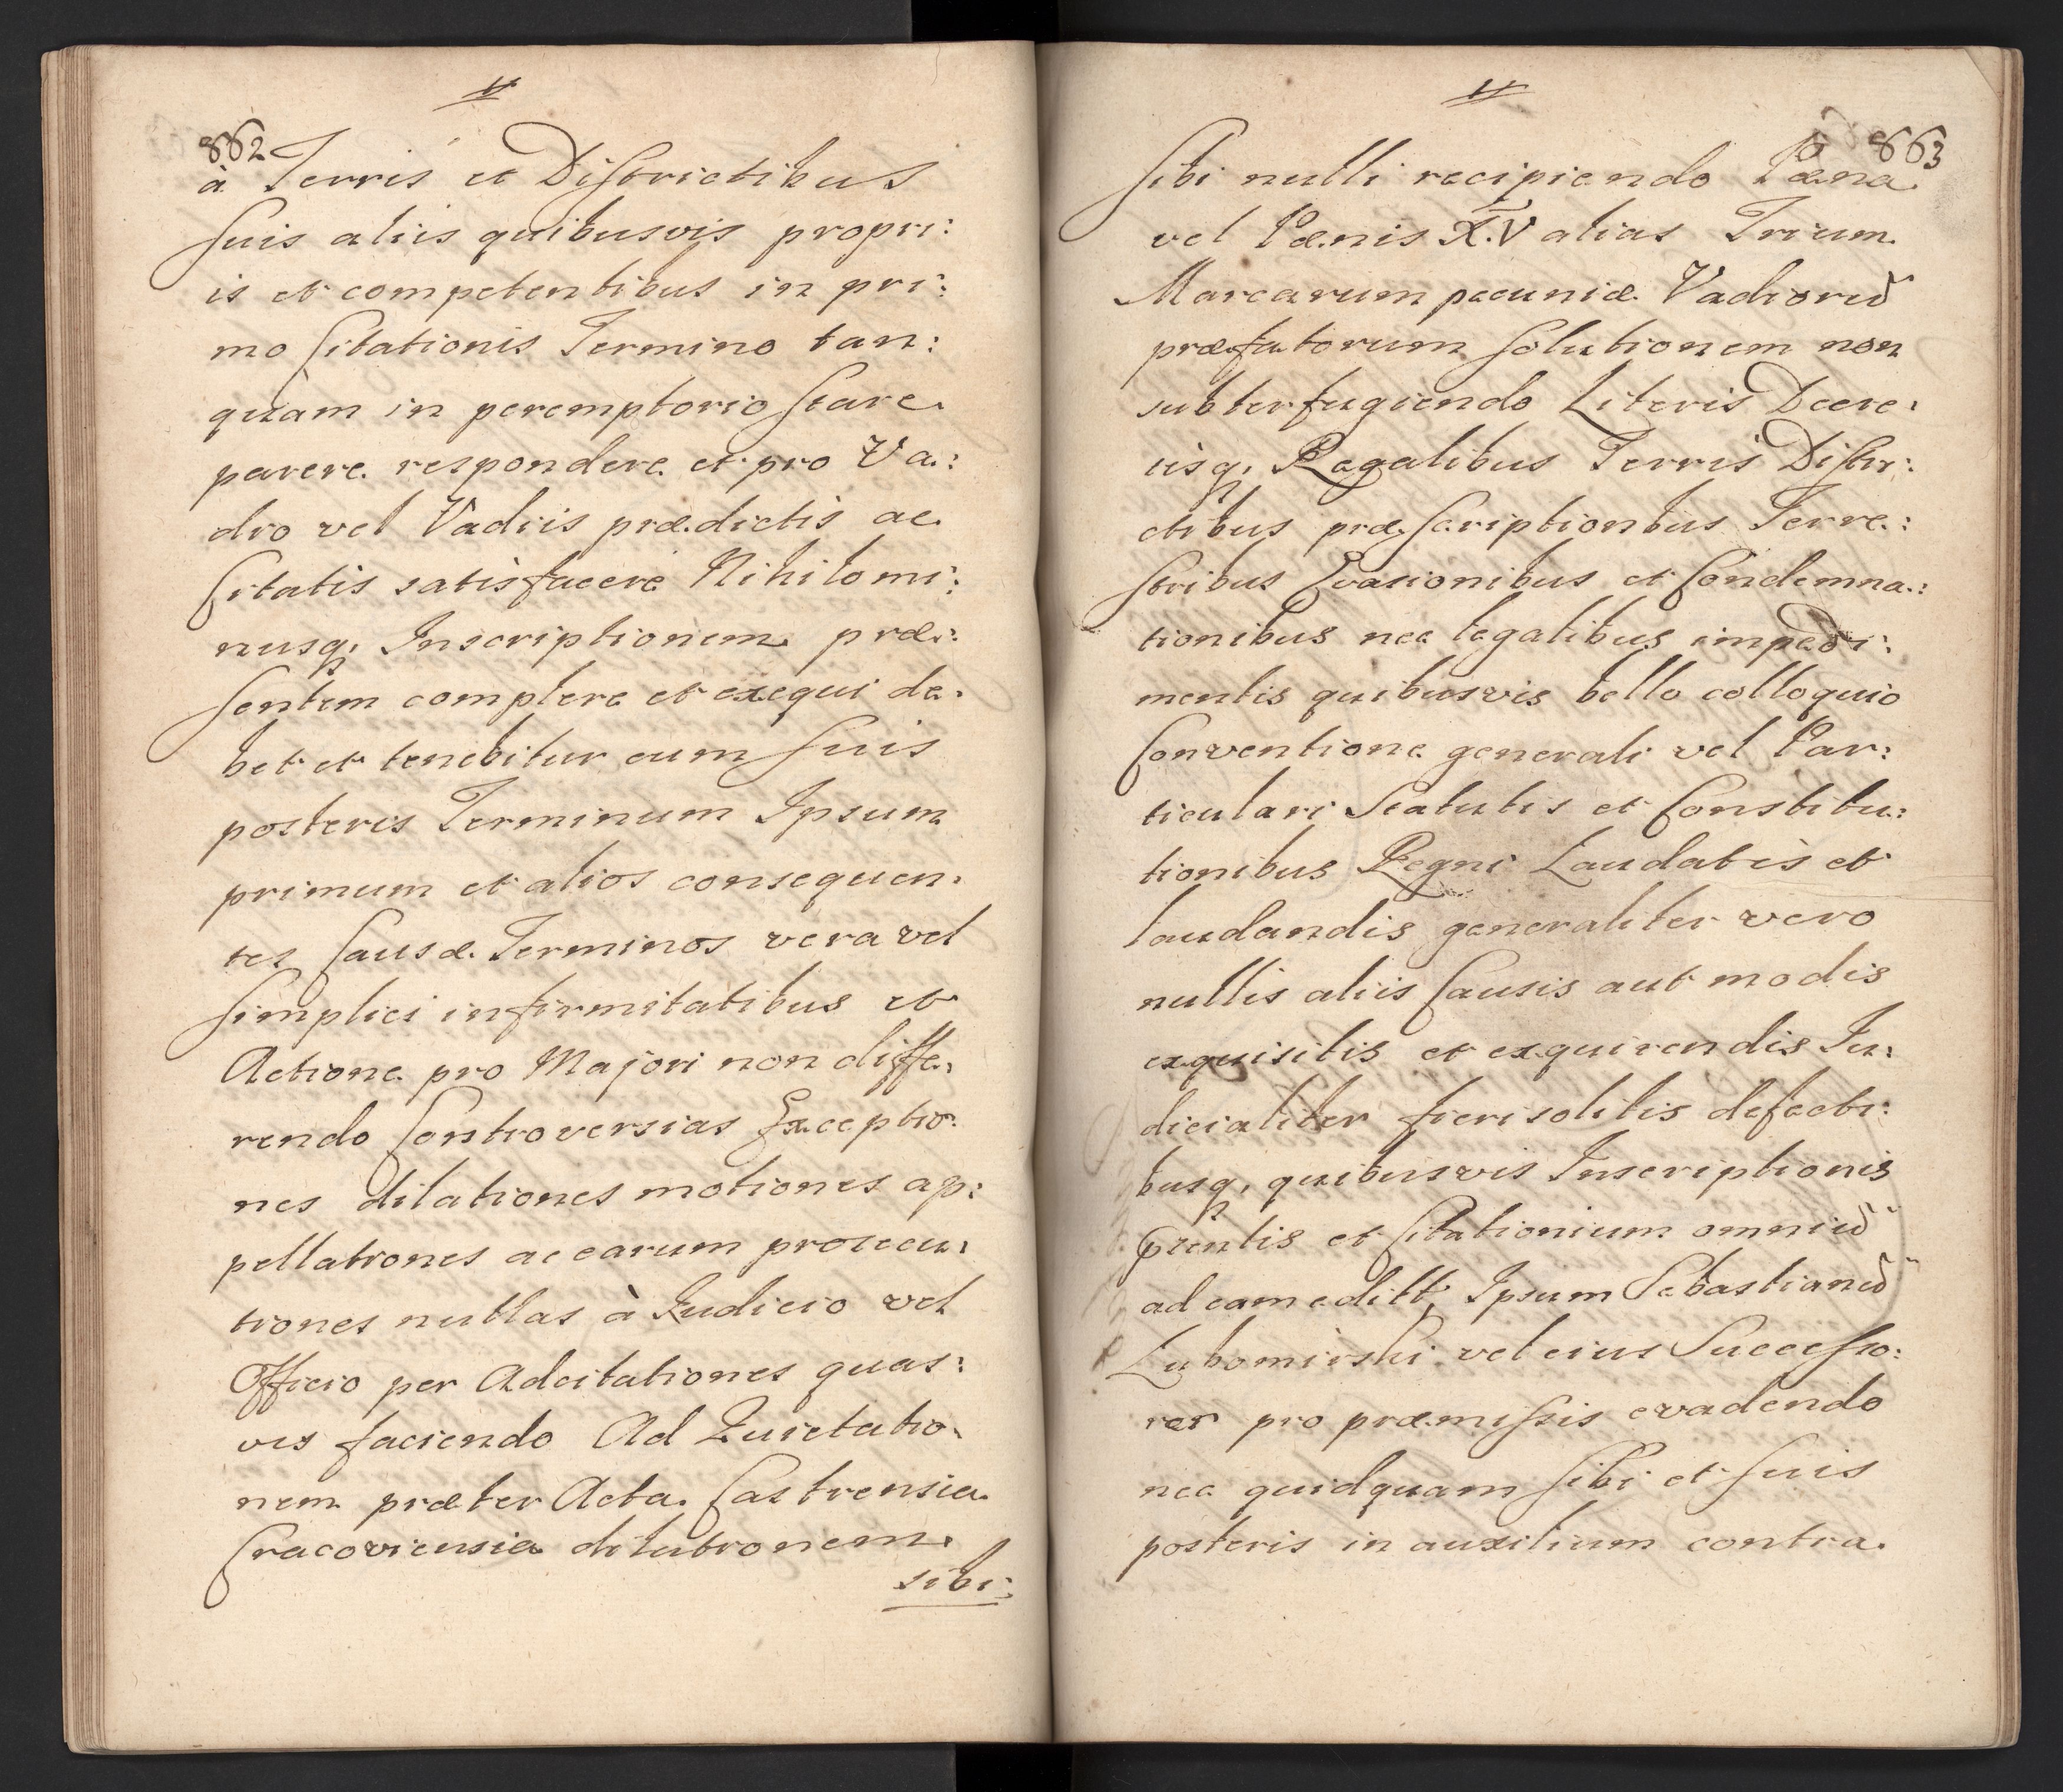 862
à Terris et Districtibus
Suis aliis quibusvis propri:
is et competentibus in pri:
mo Citationis Termino tan:
quàm in peremptorio Stare
parere respondere et pro Va:
dio vel Vadiis prædictis ac
Citatis satisfacere Nihilomi:
nusq, Inscriptionem præ:
sentem complere et exequi de:
bet et tenebitur cum Suis
posteris Terminum Ipsum
primum et alios consequen:
tes Causæ Terminos vera vel
Simplici infirmitatibus et
Actione pro Majori non diffe:
rendo Controversias Exceptio:
nes dilationes motiones ap:
pellationes ac earum prosecu:
tiones nullas à Judicio vel
Officio per Adcitationes quas:
vis faciendo Ad Quietatio:
nem præter Acta Castrensia
Cracoviensia dilutionem
sibi:
863
Sibi nulli recipiendo Pœna
vel Pœnis X.V alias Trium
Marcarum pecuniæ Vadiorū
præfatorum Solutionem non
subterfugiendo Literis Decre:
tisq, Regalibus Terris Distri:
ctibus præscriptionibus Terre:
stribus Evasionibus et Condemna:
tionibus nec legalibus impedi:
mentis quibusvis bello colloquio
Conventione generali vel Par:
ticulari Statutis et Constitu:
tionibus Regni Laudatis et
laudandis generaliter vero
nullis aliis Causis aut modis
exquisitis et exquirendis Ju:
dicialiter fieri solitis defecti:
busq, quibusvis Inscriptionis
pñtis et Citationium omniū
ad eam editt, Ipsum Sebastianū
Lubomirski vel eius Successo:
res pro præmissis evadendo
nec quidquam Sibi et Suis
posteris in auxilium contra